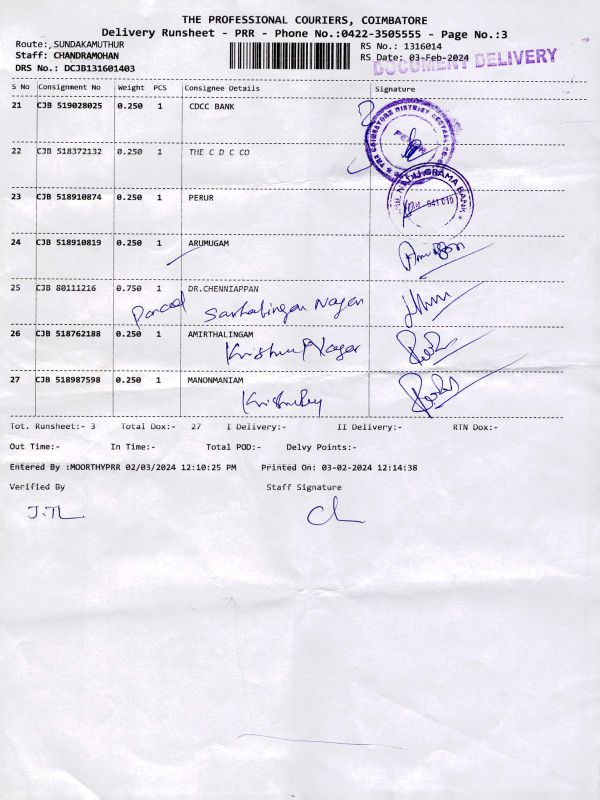 THE PROFESSIONAL COURIERS, COIMBATORE
Delivery Runsheet - PRR - Phone No.:0422-3505555 - Page No.:3
Route:,SUNDAKAMUTHUR RS No.: 1316014
Staff: CHANDRAMOHAN RS Date: 03-Feb-2024
DRS No.: DCJB131601403
DOCUMENT DELIVERY
S No Consignment No Weight PCS Consignee Details Signature
21 CJB 519028025 0.250 1 CDCC BANK
22 CJB 518372132 0.250 1 THE C D C CO
23 CJB 518910874 0.250 1 PERUR
24 CJB 518910819 0.250 1 ARUMUGAM
25 CJB 80111216 0.750 1 DR.CHENNIAPPAN
Nagar
26 CJB 518762188 0.250 1 AMIRTHALINGAM
Nagar
27 CJB 518987598 0.250 1 MANONMANIAM
Tot. Runsheet:- 3 Total Dox:- 27 I Delivery:- II Delivery:- RTN Dox:-
Out Time:- In Time:- Total POD:- Delvy Points:-
Entered By :MOORTHYPRR 02/03/2024 12:10:25 PM Printed On: 03-02-2024 12:14:38
Verified By Staff Signature